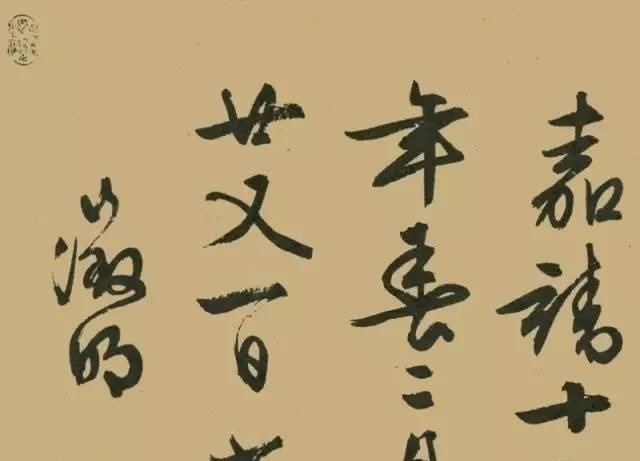 嘉靖十
年春二月
廿又一日
徵明